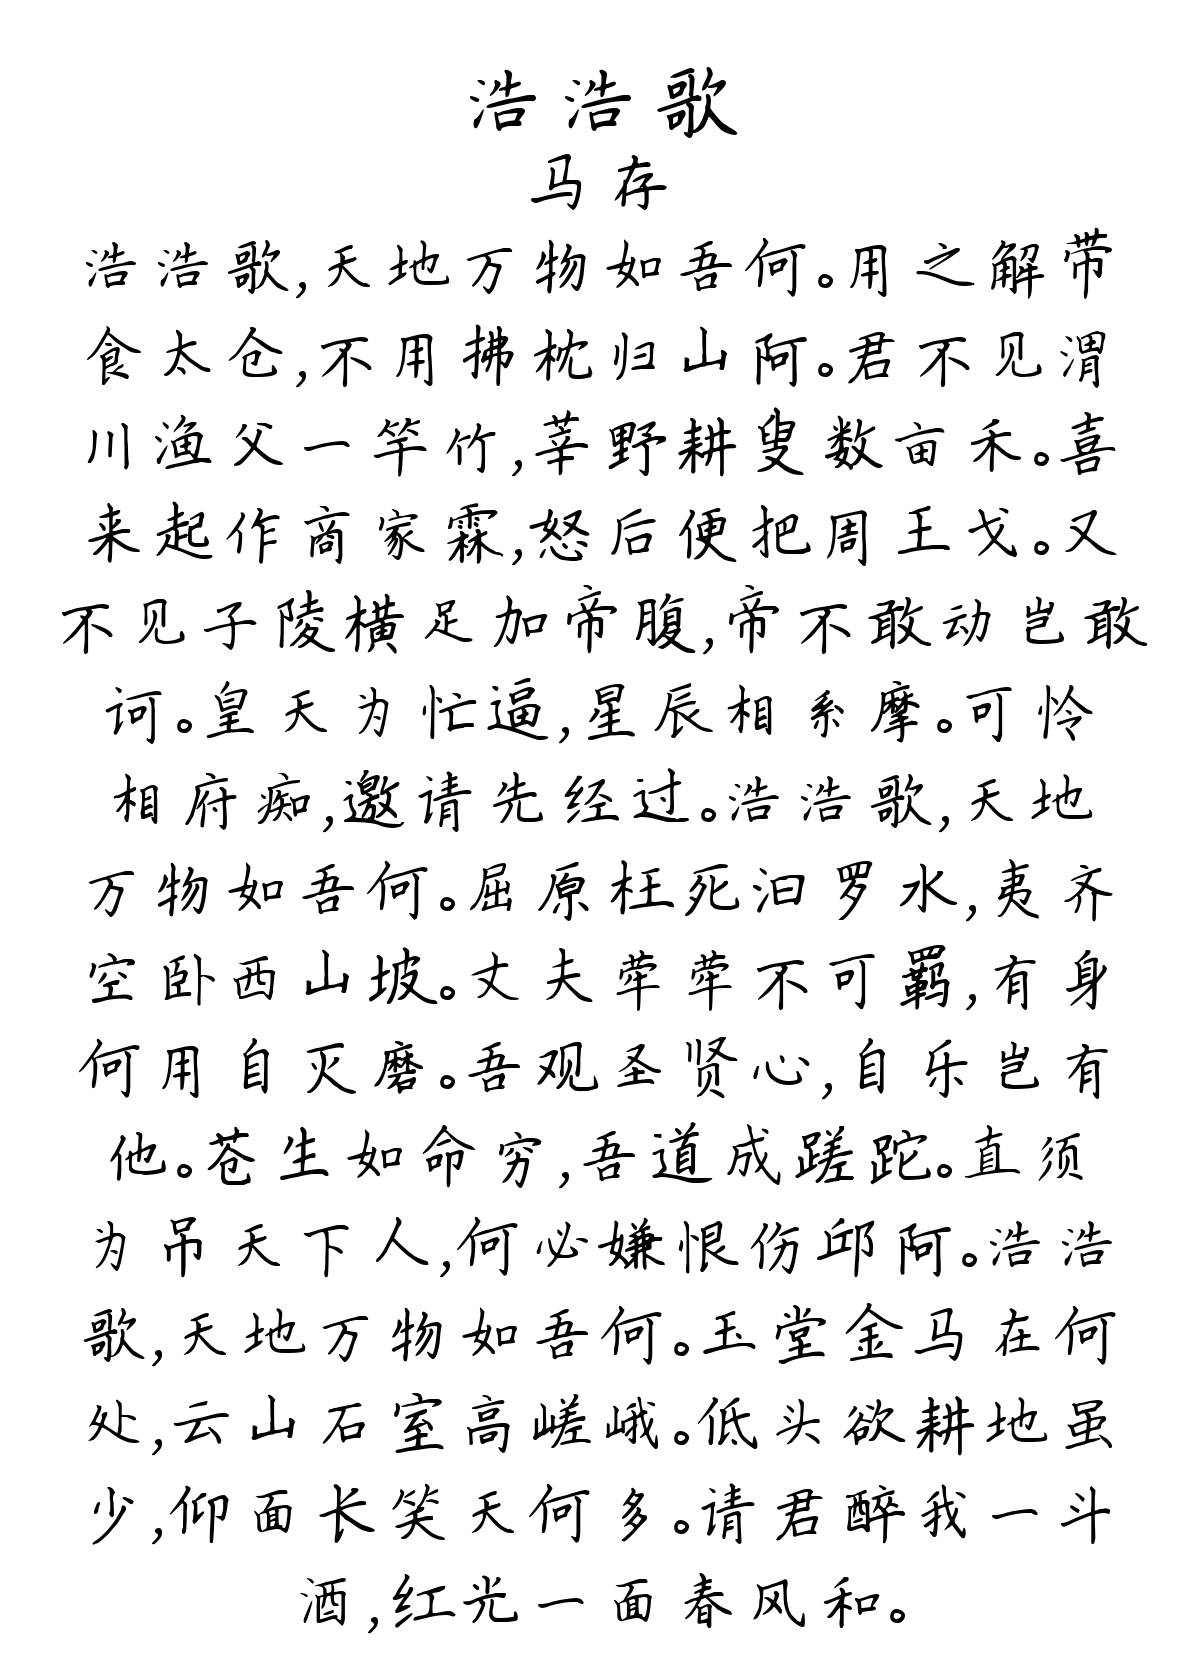 浩浩歌
马存
浩浩歌,天地万物如吾何。用之解带
食太仓,不用拂枕归山阿。君不见渭
川渔父一竿竹,莘野耕叟数亩禾。喜
来起作商家霖,怒后便把周王戈。又
不见子陵横足加帝腹,帝不敢动岂敢
诃。皇天为忙逼,星辰相系摩。可怜
相府痴,邀请先经过。浩浩歌,天地
万物如吾何。屈原枉死汨罗水,夷齐
空卧西山坡。丈夫荦荦不可羁,有身
何用自灭磨。吾观圣贤心,自乐岂有
他。苍生如命穷,吾道成蹉跎。直须
为吊天下人,何必嫌恨伤邱阿。浩浩
歌,天地万物如吾何。玉堂金马在何
处,云山石室高嵯峨。低头欲耕地虽
少,仰面长笑天何多。请君醉我一斗
酒,红光一面春风和。